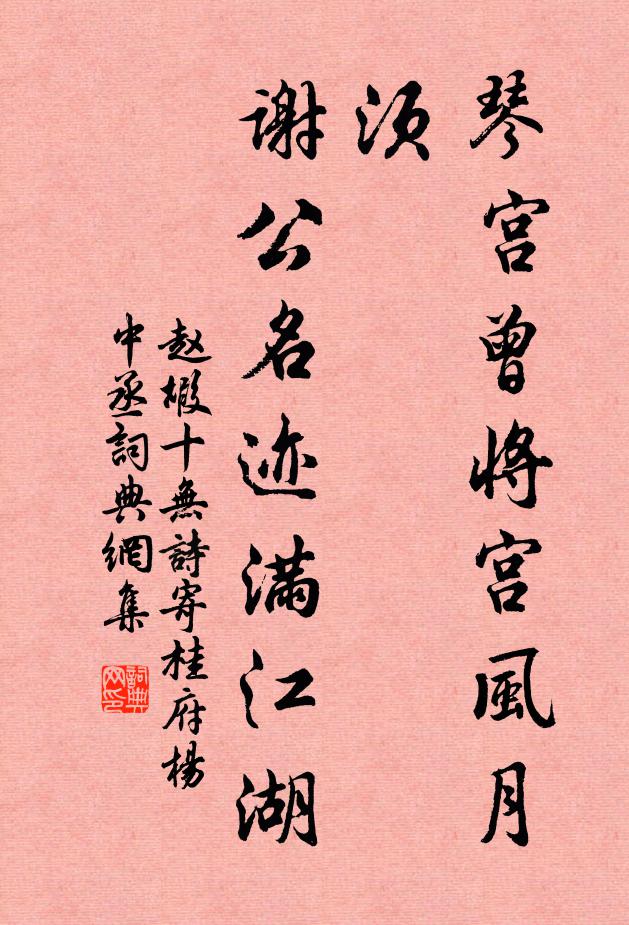 琴宫曾将宫風月
须
謝公名迹满江湖
赵嘏十無詩寄桂府楊
中丞詞典網集
詞典网印